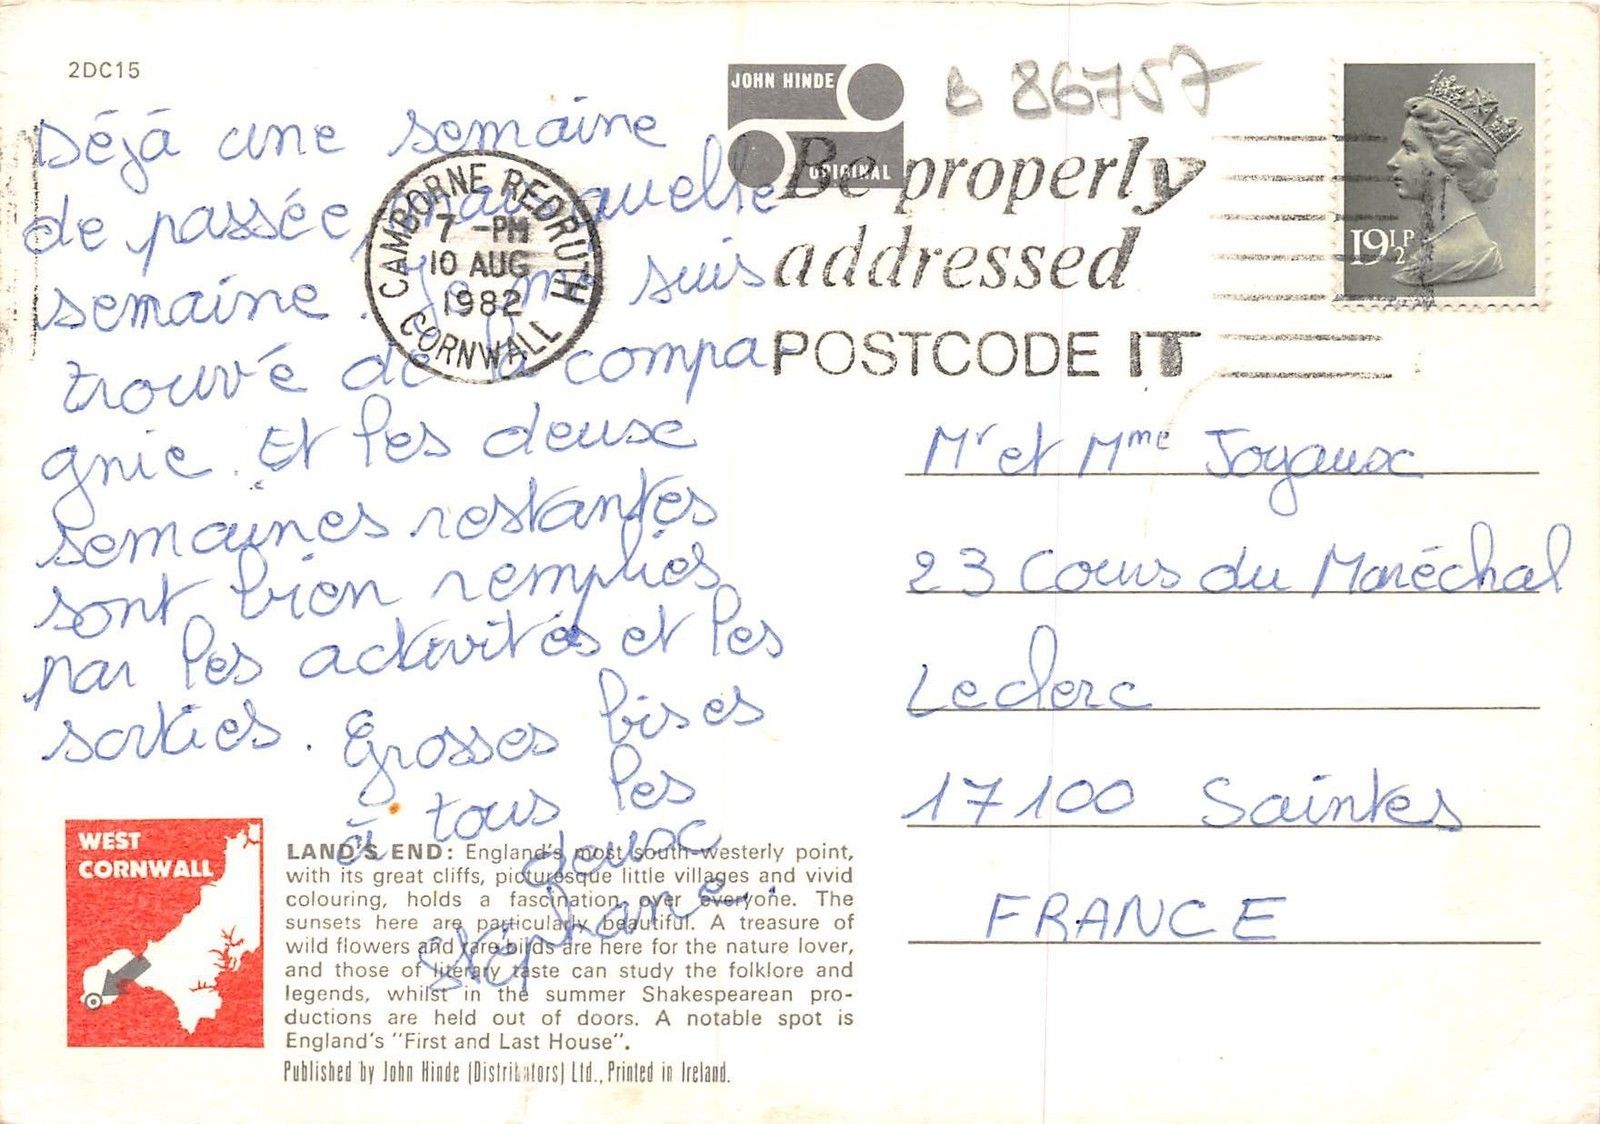 2DC15
Déjà une semaine
de passée, mais quelle
semaine. Je me suis
trouvé de la compa
gnie. Et les deux
semaines restantes
sont bien remplies
par les activités et les
sorties. Grosses bises
à tous les
deux
Stéphane.
JOHN HINDE
ORIGINAL
B 86757
CAMBORNE REDRUTH
7 - PM
10 AUG
1982
CORNWALL
Be properly
addressed
POSTCODE IT
19½P
Mr et Mme Joyaux
23 Cours du Maréchal
Leclerc
17100 Saintes
FRANCE
WEST
CORNWALL
LAND'S END: England's most south-westerly point,
with its great cliffs, picturesque little villages and vivid
colouring, holds a fascination over everyone. The
sunsets here are particularly beautiful. A treasure of
wild flowers and rare birds are here for the nature lover,
and those of literary taste can study the folklore and
legends, whilst in the summer Shakespearean pro-
ductions are held out of doors. A notable spot is
England's "First and Last House".
Published by John Hinde (Distributors) Ltd., Printed in Ireland.